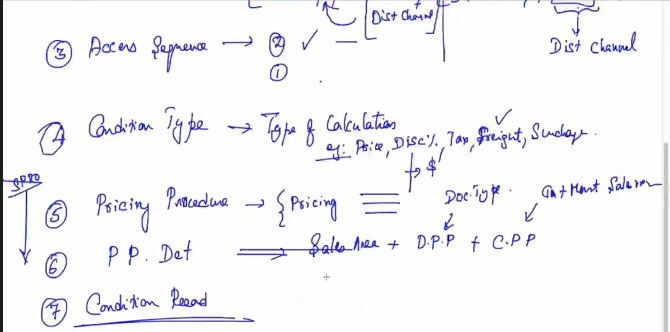 Dist Channel
Dist Channel
③ Access Sequence → ② ✓ —
①
④ Condition Type → Type of Calculation
eg: Price, Disc%, Tax, Freight, Surcharge.
→ $
SPRO
⑤ Pricing Procedure → { Pricing
Doc.Type.
⑥ P P. Det ⟹ Sales Area + D.P.P + C.P.P
⑦ Condition Record